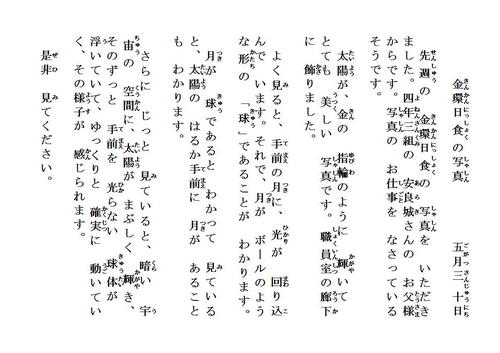 金環日食の写真　　　五月三十日
先週の　金環日食の　写真を　いただき
ました。四年三組の　安良城さんの　お父様
からです。写真の　お仕事を　なさっている
そうです。
太陽が、金の　指輪のように　輝いて
とても　美しい　写真です。職員室の廊下
に　飾りました。
よく見ると、手前の月に、光が　回り込
んで　います。それで、月が　ボールのよう
な形の　「球」であることが　わかります。
月が　球であると　わかって　見ている
と、太陽の　はるか手前に　月が　あること
も　わかります。
さらに　じっと　見ていると、暗い　宇
宙の　空間に、太陽が　まぶしく　輝き、
そのずっと　手前を　光らない　球体が
浮いていて、ゆっくりと　確実に　動いてい
く、その様子が　感じられます。
是非　見てください。